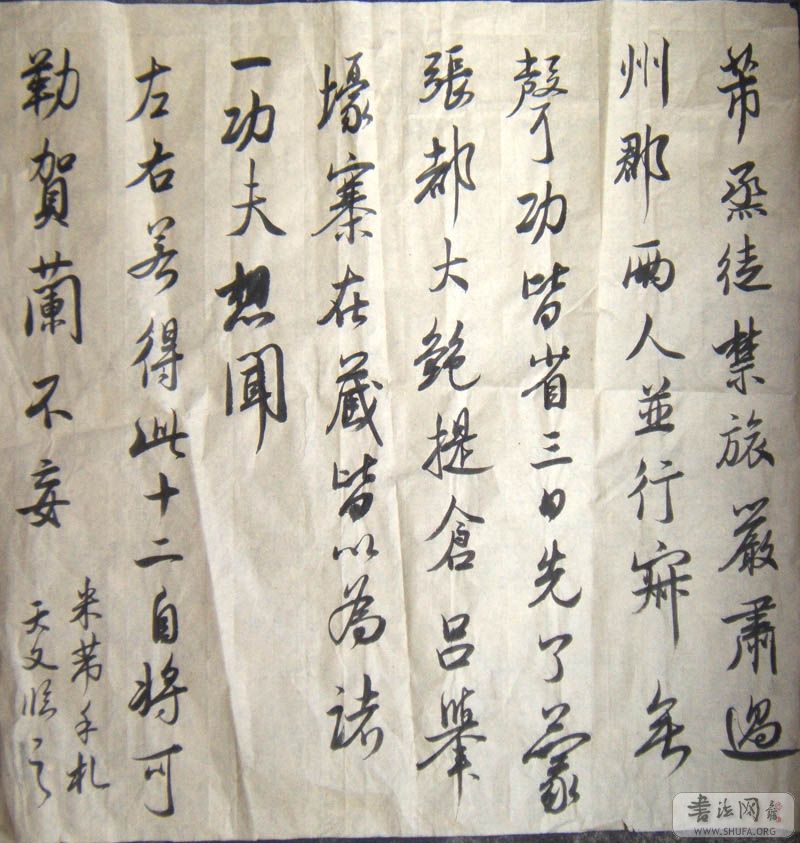 芾烝徒禁旅嚴肅過
州郡兩人並行寂無
聲功皆省三日先了蒙
張都大鮑提倉呂舉
壕寨在藏皆以為諸
一功夫想聞
左右若得此十二自將可
勒賀蘭不妄
米芾手札
天文臨之
書法网
WWW.SHUFA.ORG